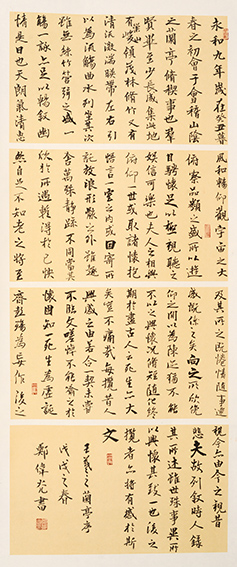 永和九年歲在癸丑暮
春之初會于會稽山陰
之蘭亭脩稧事也羣
賢畢至少長咸集此地
有崇山峻領茂林脩竹又有
清流激湍暎帶左右引
以為流觴曲水列坐其次
雖無絲竹管弦之盛一
觴一詠亦足以暢叙幽
情矣是日也天朗氣清惠
風和暢仰觀宇宙之大
俯察品類之盛所以遊
目騁懷足以極視聽之
娛信可樂也夫人之相與
俯仰一世或取諸懷抱
悟言一室之內或因寄所
託放浪形骸之外雖趣
舍萬殊靜躁不同當其
欣於所遇暫得於己快
然自足不知老之將至
及其所之既惓情隨事遷
感慨係之矣向之所欣俛
仰之間以為陳迹猶不能
不以之興懷況脩短隨化終
期於盡古人云死生亦大
矣豈不痛哉每攬昔人
興感之由若合一契未嘗
不臨文嗟悼不能喻之於
懷固知一死生為虛誕
齊彭殤為妄作後之
視今亦由今之視昔
悲夫故列叙時人錄
其所述雖世殊事異所
以興懷其致一也後之
攬者亦將有感於斯
文
王羲之蘭亭序
戊戌之春
鄭偉光書